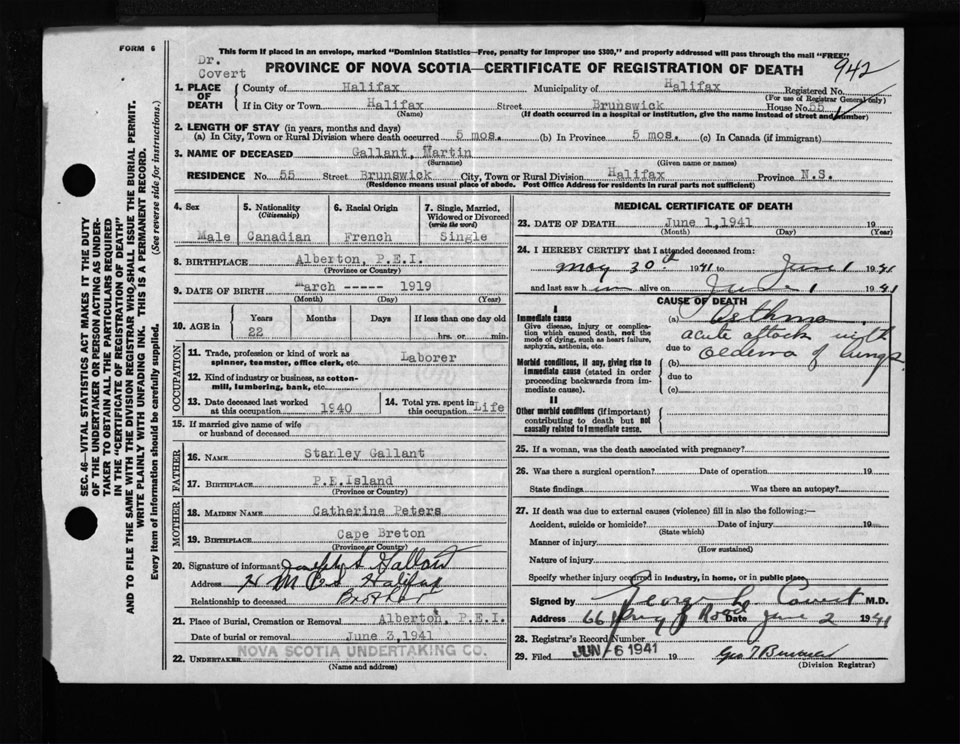 FORM 6
This form if placed in an envelope, marked "Dominion Statistics—Free, penalty for improper use $300," and properly addressed will pass through the mail "FREE"
Dr. Covert
PROVINCE OF NOVA SCOTIA—CERTIFICATE OF REGISTRATION OF DEATH
942
1. PLACE OF DEATH
County of Halifax Municipality of Halifax Registered No.
(For use of Registrar General only)
If in City or Town Halifax Street Brunswick House No. 55
(Name) (If death occurred in a hospital or institution, give the name instead of street and number)
2. LENGTH OF STAY (in years, months and days)
(a) In City, Town or Rural Division where death occurred 5 mos. (b) In Province 5 mos. (c) In Canada (if immigrant)
3. NAME OF DECEASED Gallant, Martin
(Surname) (Given name or names)
RESIDENCE No. 55 Street Brunswick City, Town or Rural Division Halifax Province N.S.
(Residence means usual place of abode. Post Office Address for residents in rural parts not sufficient)
4. Sex Male
5. Nationality (Citizenship) Canadian
6. Racial Origin French
7. Single, Married, Widowed or Divorced (write the word) Single
8. BIRTHPLACE Alberton, P.E.I.
(Province or Country)
9. DATE OF BIRTH March ----- 1919
(Month) (Day) (Year)
10. AGE in Years Months Days If less than one day old
22 hrs. or min.
OCCUPATION
11. Trade, profession or kind of work as spinner, teamster, office clerk, etc. Laborer
12. Kind of industry or business, as cotton-mill, lumbering, bank, etc.
13. Date deceased last worked at this occupation 1940
14. Total yrs. spent in this occupation Life
15. If married give name of wife or husband of deceased
FATHER
16. NAME Stanley Gallant
17. BIRTHPLACE P.E.Island
(Province or Country)
MOTHER
18. MAIDEN NAME Catherine Peters
19. BIRTHPLACE Cape Breton
(Province or Country)
20. Signature of informant Gallant
Address Halifax
Relationship to deceased Brother
21. Place of Burial, Cremation or Removal Alberton, P.E.I.
Date of burial or removal June 3,1941
22. UNDERTAKER NOVA SCOTIA UNDERTAKING CO.
(Name and address)
MEDICAL CERTIFICATE OF DEATH
23. DATE OF DEATH June 1,1941 19
(Month) (Day) (Year)
24. I HEREBY CERTIFY that I attended deceased from:
May 30th 1941 to June 1 1941
and last saw him alive on June 1 1941
CAUSE OF DEATH
I
Immediate cause
Give disease, injury or complication which caused death, not the mode of dying, such as heart failure, asphyxia, asthenia, etc.
(a) Asthma
acute attack with
due to Oedema of lungs
Morbid conditions, if any, giving rise to immediate cause (stated in order proceeding backwards from immediate cause).
(b)
due to
(c)
II
Other morbid conditions (if important) contributing to death but not causally related to immediate cause.
25. If a woman, was the death associated with pregnancy?
26. Was there a surgical operation? Date of operation 19
State findings Was there an autopsy?
27. If death was due to external causes (violence) fill in also the following:—
Accident, suicide or homicide? Date of injury 19
(State which)
Manner of injury
(How sustained)
Nature of injury
Specify whether injury occurred in industry, in home, or in public place
Signed by George L. Covert M.D.
Address 66 Road Date June 2 1941
28. Registrar's Record Number
29. Filed JUN 6 1941 19
(Division Registrar)
SEC. 46—VITAL STATISTICS ACT MAKES IT THE DUTY
OF THE UNDERTAKER OR PERSON ACTING AS UNDER-
TAKER TO OBTAIN ALL THE PARTICULARS REQUIRED
IN THE "CERTIFICATE OF REGISTRATION OF DEATH"
AND TO FILE THE SAME WITH THE DIVISION REGISTRAR WHO SHALL ISSUE THE BURIAL PERMIT.
WRITE PLAINLY WITH UNFADING INK. THIS IS A PERMANENT RECORD.
Every item of information should be carefully supplied. (See reverse side for instructions.)